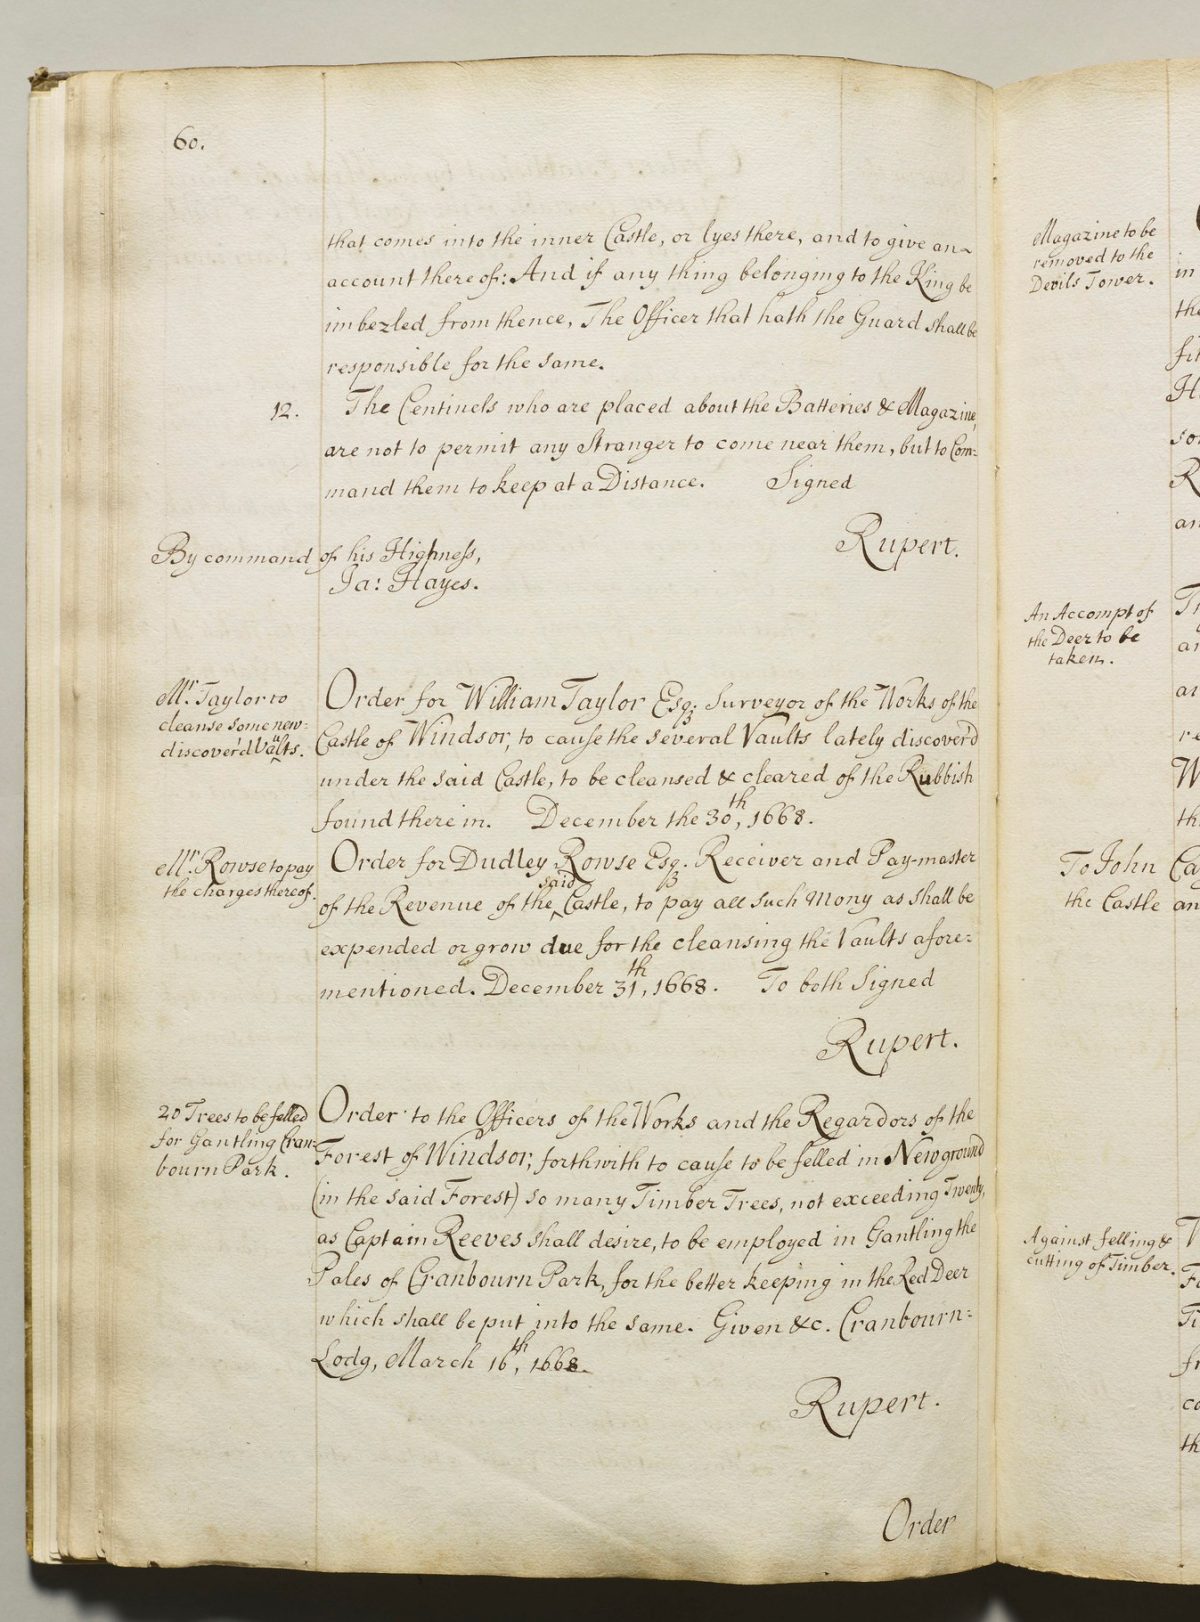 60.
that comes into the inner Castle, or lyes there, and to give an
account thereof: And if any thing belonging to the King be
imbezled from thence, The Officer that hath the Guard shall be
responsible for the same.
12. The Centinels who are placed about the Batteries & Magazine,
are not to permit any Stranger to come near them, but to Com=
mand them to keep at a Distance. Signed
Rupert.
By command of his Highness,
Ja: Hayes.
Mr. Taylor to
cleanse some new=
discover'd Vaults.
Order for William Taylor Esq; Surveyor of the Works of the
Castle of Windsor, to cause the several Vaults lately discover'd
under the said Castle, to be cleansed & cleared of the Rubbish
found there in. December the 30th, 1668.
Mr. Rowse to pay
the charges thereof.
Order for Dudley Rowse Esq; Receiver and Pay-master
of the Revenue of the said Castle, to pay all such Mony as shall be
expended or grow due for the cleansing the Vaults afore=
mentioned. December 31th, 1668. To both Signed
Rupert.
20 Trees to be felled
for Gantling Cran=
bourn Park.
Order to the Officers of the Works and the Regardors of the
Forest of Windsor, forthwith to cause to be felled in New ground
(in the said Forest) so many Timber Trees, not exceeding Twenty,
as Captain Reeves shall desire, to be employed in Gantling the
Pales of Cranbourn Park, for the better keeping in the Red Deer
which shall be put into the same. Given &c. Cranbourn=
Lodg, March 16th, 1668.
Rupert.
Order
Magazine to be
removed to the
Devils Tower.
in
the
An Accompt of
the Deer to be
taken.
To John
the Castle an
Against felling &
cutting of Timber.